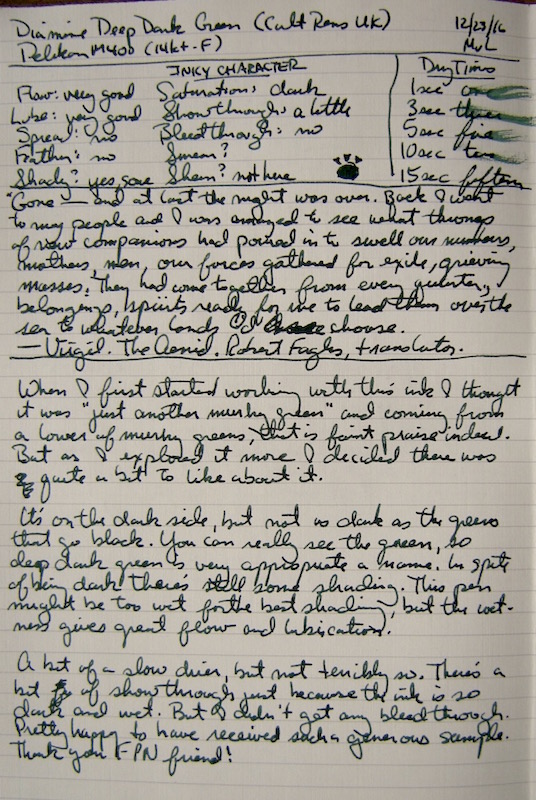 Diamine Deep Dark Green (Cult Pens UK)
12/23/16
Pelikan M400 (14kt-F)
INKY CHARACTER
Flow: very good Saturation: dark
Lube: very good Showthrough: a little
Spread: no Bleedthrough: no
Feather: no Smear?
Shady? yes, some Sheen? not here
Dry Times
1 sec one
3 sec three
5 sec five
10 sec ten
15 sec fifteen
"Gone — and at last the night was over. Back I went
to my people and I was amazed to see what throngs
of new companions had poured in to swell our numbers,
mothers, men, our forces gathered for exile, grieving
masses. They had come together from every quarter,
belongings, spirits ready for me to lead them over the
sea to whatever lands I'd choose.
— Virgil. The Aeneid. Robert Fagles, translator.
When I first started working with this ink I thought
it was "just another murky green" and coming from
a lover of murky greens, that is faint praise indeed.
But as I explored it more I decided there was
quite a bit to like about it.
It's on the dark side, but not as dark as the greens
that go black. You can really see the green, so
deep dark green is very appropriate a name. In spite
of being dark there's still some shading. This pen
might be too wet for the best shading, but the wet-
ness gives great flow and lubrication.
A bit of a slow drier, but not terribly so. There's a
bit of showthrough just because the ink is so
dark and wet. But I didn't get any bleedthrough.
Pretty happy to have received such a generous sample.
Thank you FPN friend!